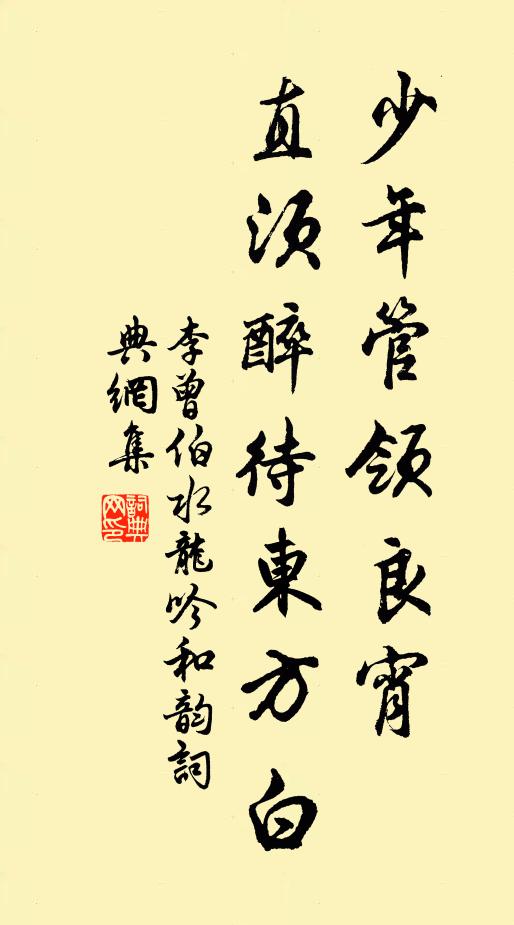 少年管領良宵
直須醉待東方白
李曾伯水龍吟和韵詞
典網集
詞典
网印